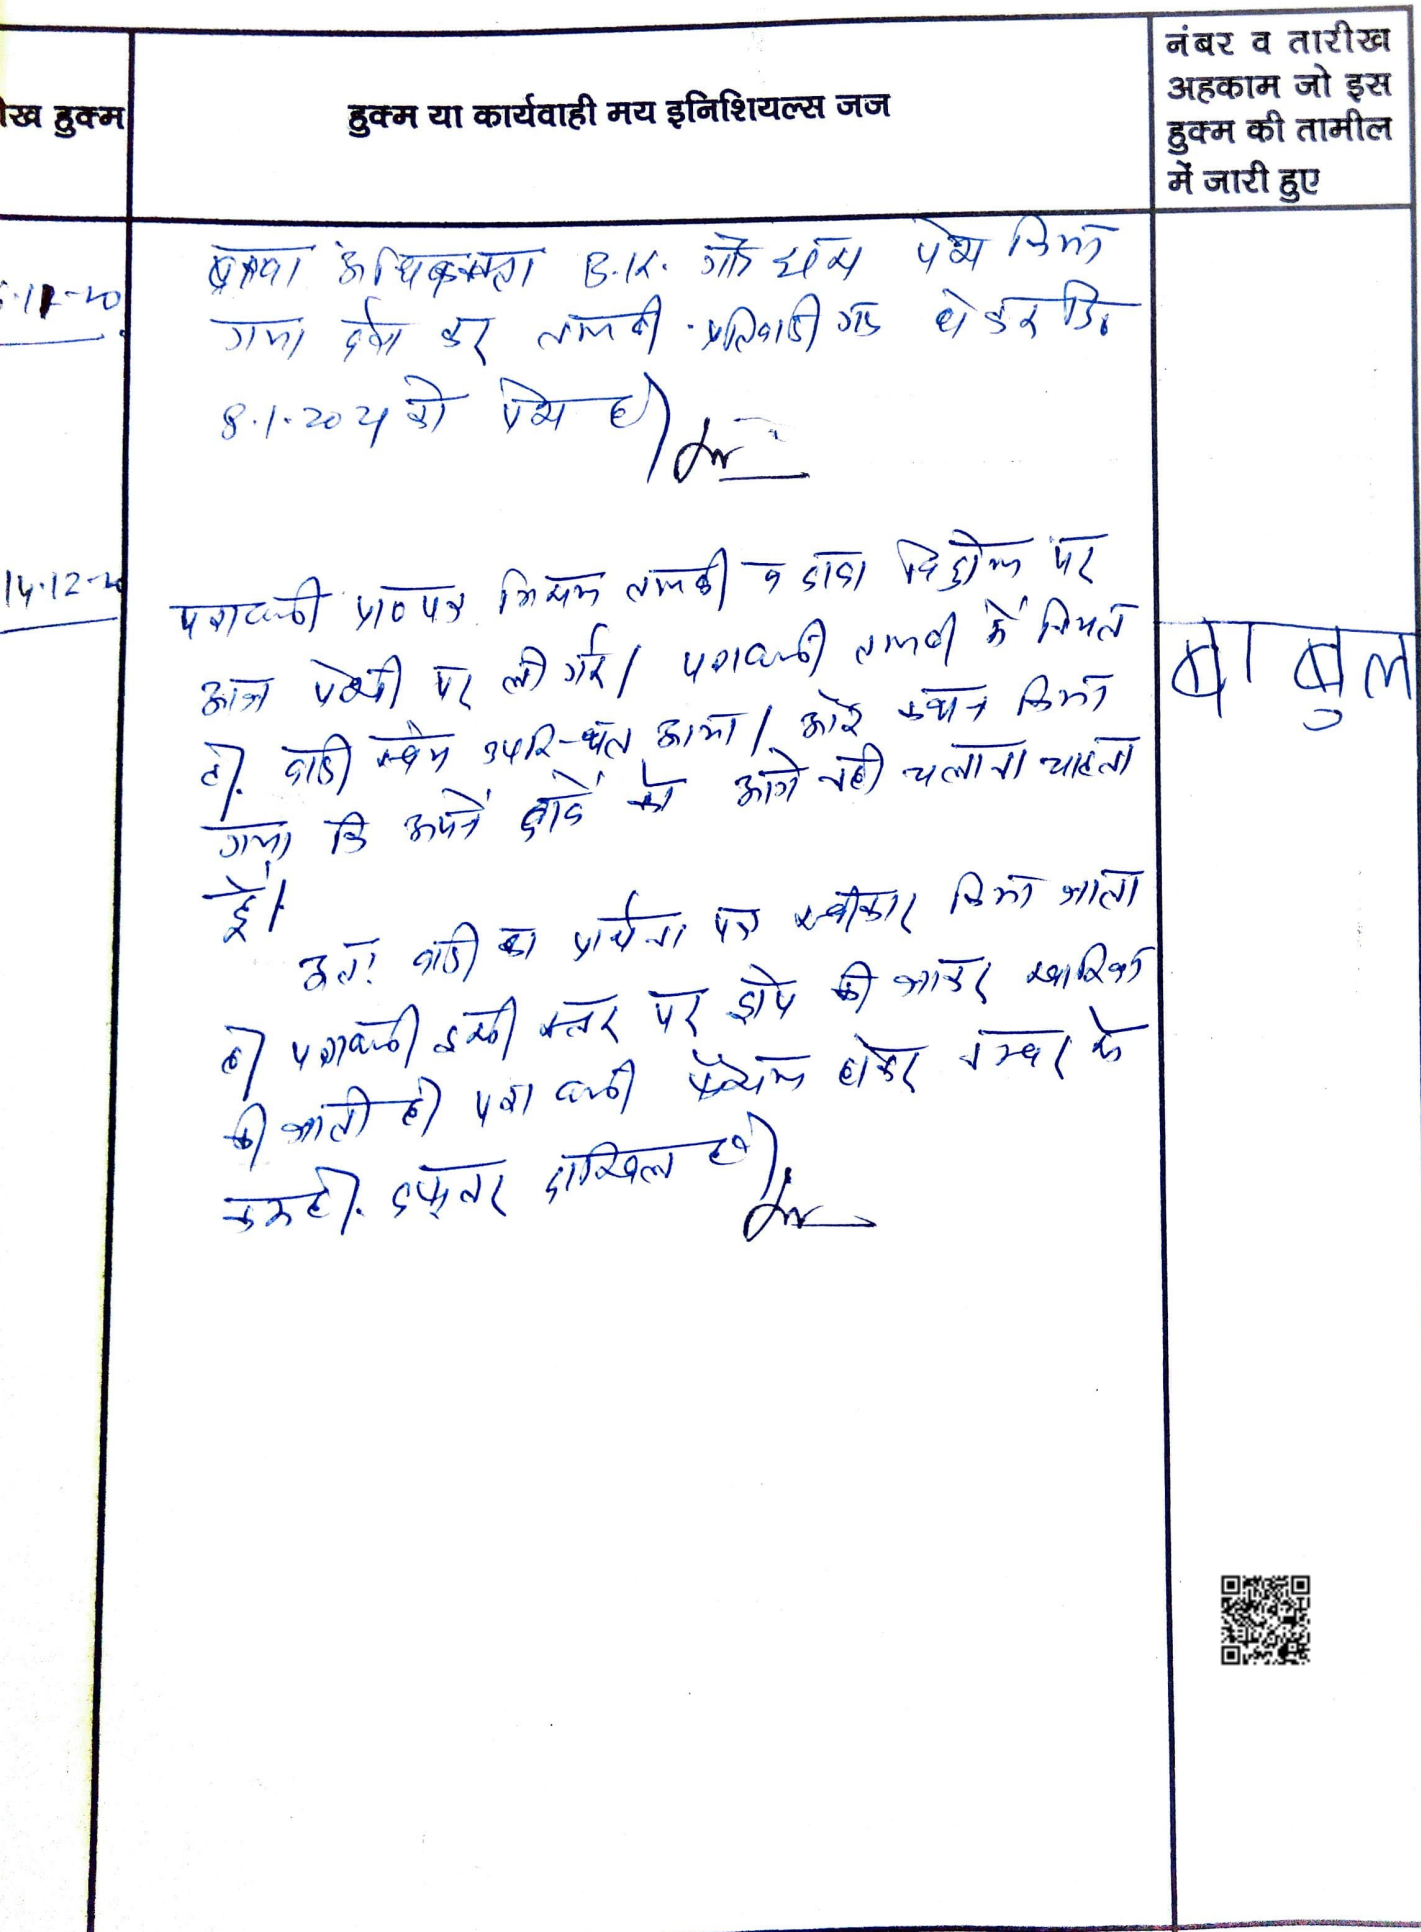 रीख हुक्म
हुक्म या कार्यवाही मय इनिशियल्स जज
नंबर व तारीख
अहकाम जो इस
हुक्म की तामील
में जारी हुए
अधिवक्ता B.K. गौड़ पेश किया
गया दर्ज कर तलबी प्रतिवादी गण होकर दि०
8.1.2021 को पेश हो
14.12.20
पत्रावली प्रा०पत्र तलबी व दावा विड्रोल पर
आज पेशी पर ली गई। पत्रावली तलबी में नियत
है. वादी स्वयं उपस्थित आया। कथन किया
गया कि अपने दावे को आगे नही चलाना चाहता
हूँ।
अतः वादी का प्रार्थना पत्र स्वीकार किया जाता
है पत्रावली इसी स्तर पर ड्रोप की जाकर खारिज
की जाती है पत्रावली होकर नम्बर से
कम हो. दफ्तर दाखिल हो
बाबुल